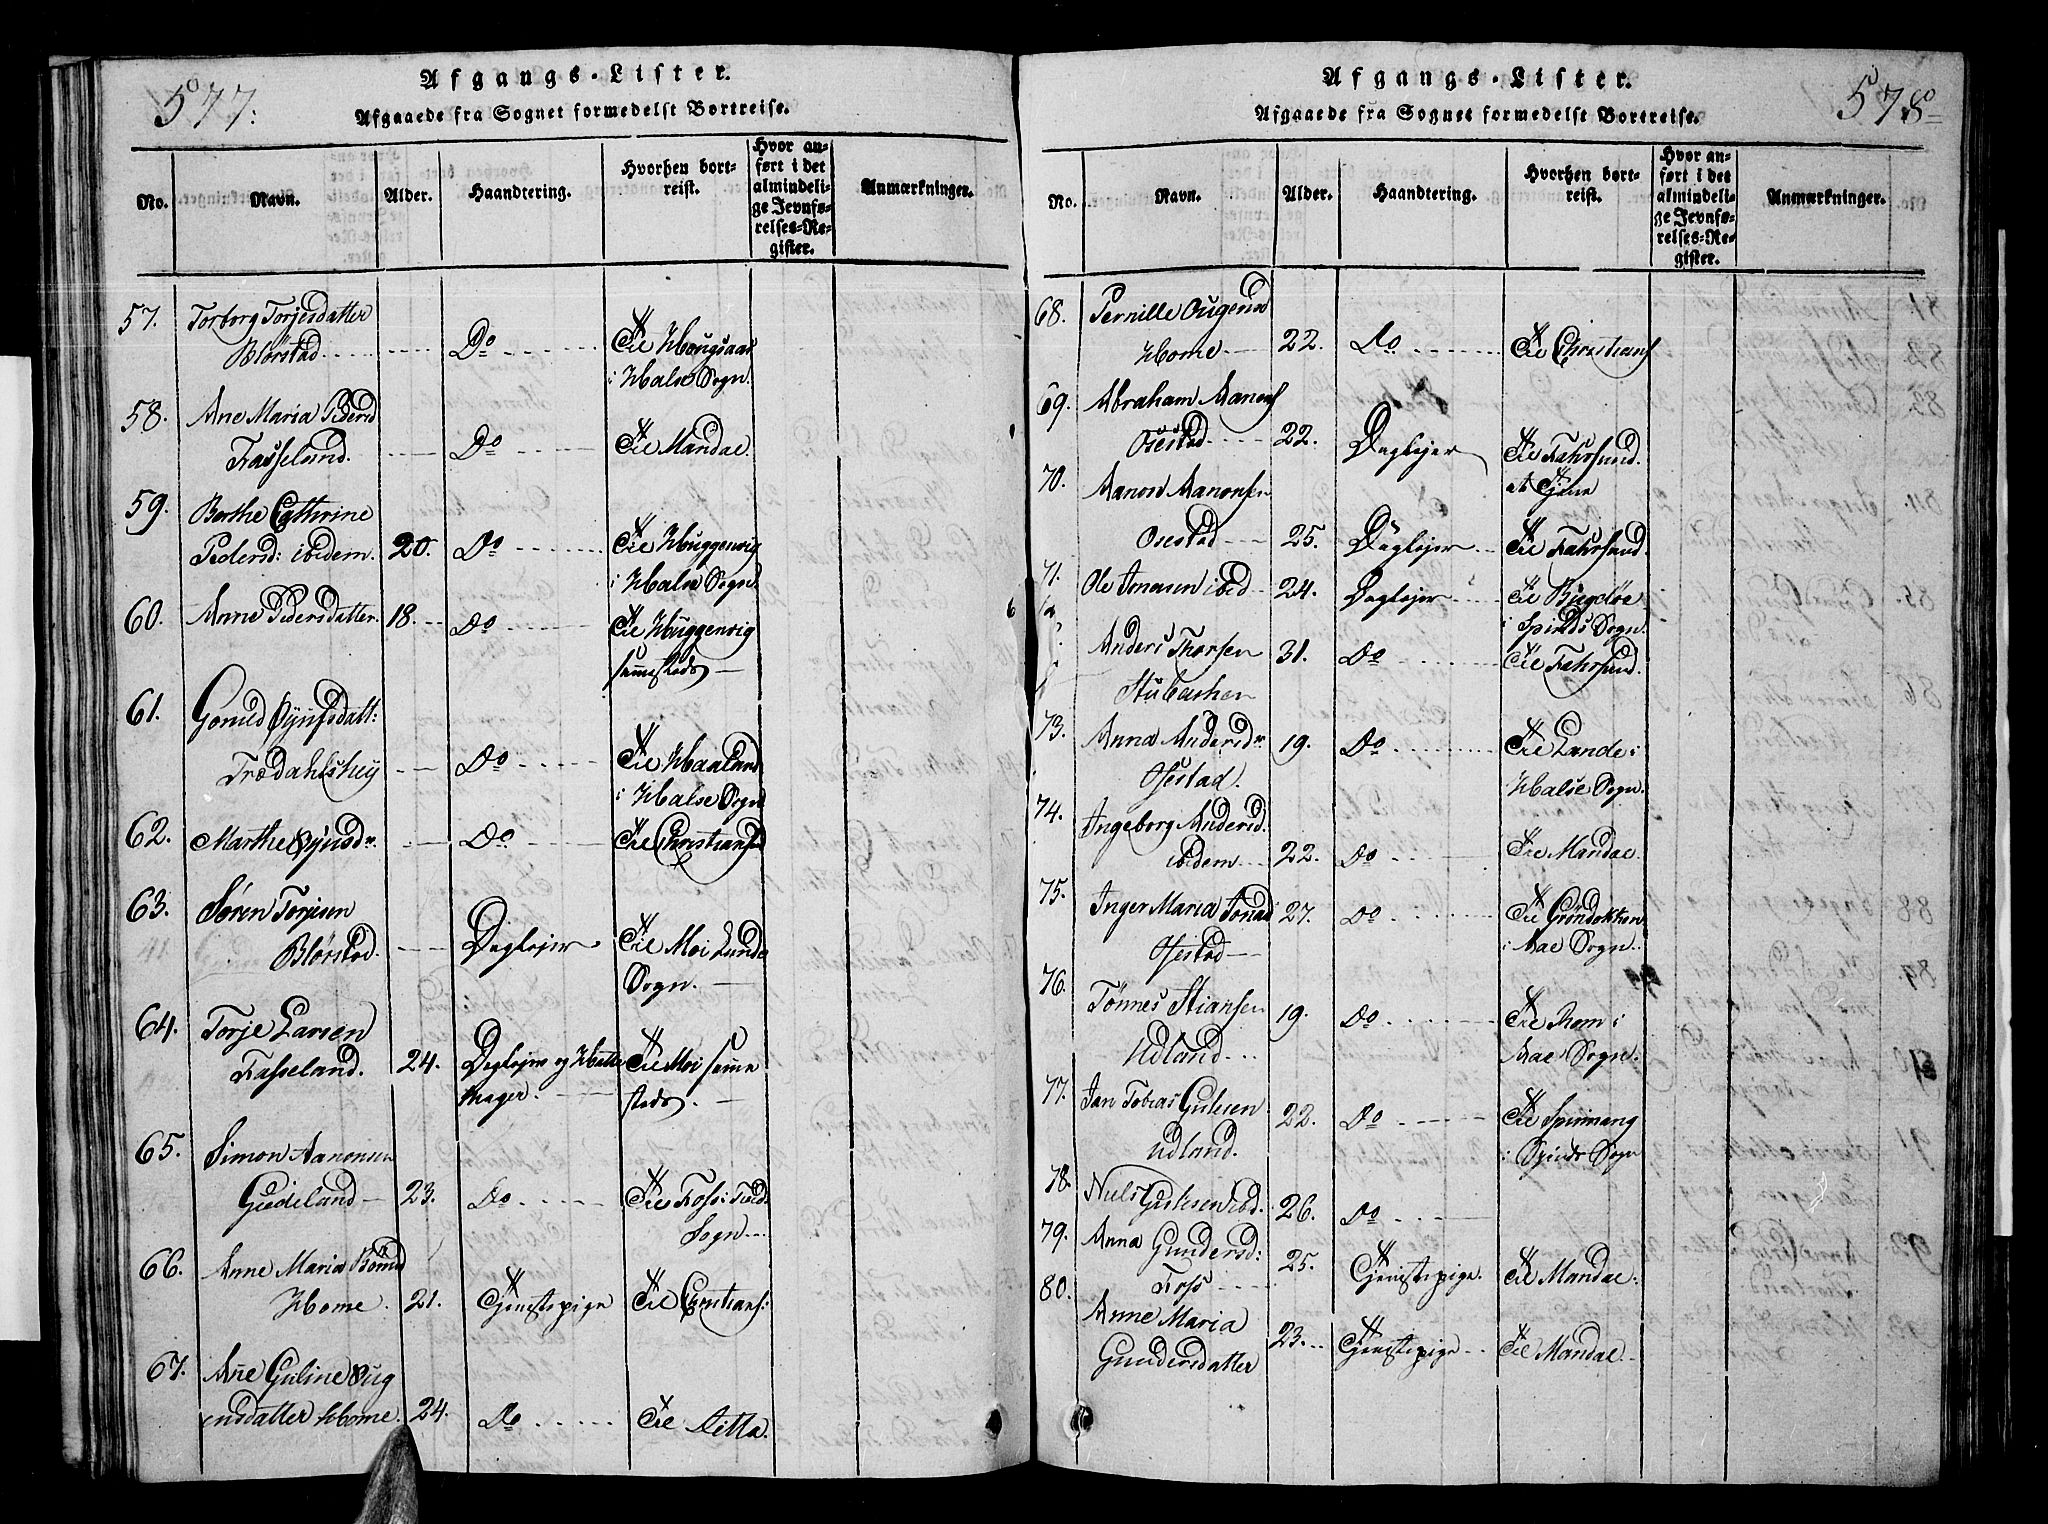 577.
Afgangs-Lister.
Afgaaede fra Sognet formedelst Bortreise.
No.
Navn.
Alder.
Haandtering.
Hvorhen bort-
reist.
Hvor an-
ført i det
almindeli-
ge Jevnfø-
relses-Re-
gister.
Anmærkninger.
57. Torborg Torjesdatter
Blørstad Do Til
i Halse Sogn.
58. Ane Maria Pedersd
Fasseland. Do Til Mandal.
59. Berthe Cathrine
Pedersd: ibidem. 20. Do Til Huggenvig
i Halse Sogn.
60. Anne Pedersdatter 18. Do Til Huggenvig
sammesteds
61. Gonild
Trædahlshey Do Til Haaland
i Halse Sogn
62. Marthe Do Til Christians
63. Søren Torjesen
Blørstad. Daglejer Til Moi Lunde
Sogn.
64. Torje Larsen
Fasseland. 24. Daglejer og Hatte Til Moi samme
mager. steds.
65. Simon Aanonsen
Gudeland 23. Do Til Foss i
Sogn
66. Anne Maria
Home. 21. Tjenstepige Til Christians:
67. Ane Guline Oug
ensdatter Home. 24. Do Til Ditto.
578
Afgangs-Lister.
Afgaaede fra Sognet formedelst Bortreise.
No.
Navn.
Alder.
Haandtering.
Hvorhen bort-
reist.
Hvor an-
ført i det
almindeli-
ge Jevnfø-
relses-Re-
gister.
Anmærkninger.
68. Pernille Ougensd
Home 22. Do Til Christians
69. Abraham Aanons
Osestad 22. Daglejer Til Fahrsund.
at tjene
70. Aanon Aanonsen
Osestad 25. Daglejer Til Fahrsund.
71. Ole ibid 24. Daglejer Til
i Spinds Sogn.
Anders Thorsen 31. Do Til Fahrsund.
73. Anna Andersdr 19. Do Til Lande i
Osestad. Halse Sogn.
74. Ingeborg Andersd.
ibidem 22. Do Til Mandal.
75. Inger Maria 27. Do Til
Osestad i Aae Sogn.
76. Tønnes Stiansen 19. Do Til Rom i
Udland Aae Sogn.
77. Jan Tobias Gulesen 22. Do Til
Udland. i Spinds Sogn
78. Niels Gulesen ibd. 26. Do
79. Anna Gundersd: 25. Tjenistepige. Til Mandal.
Foss
80. Anne Maria
Gundersdatter 23. Tjenistepige Til Mandal.